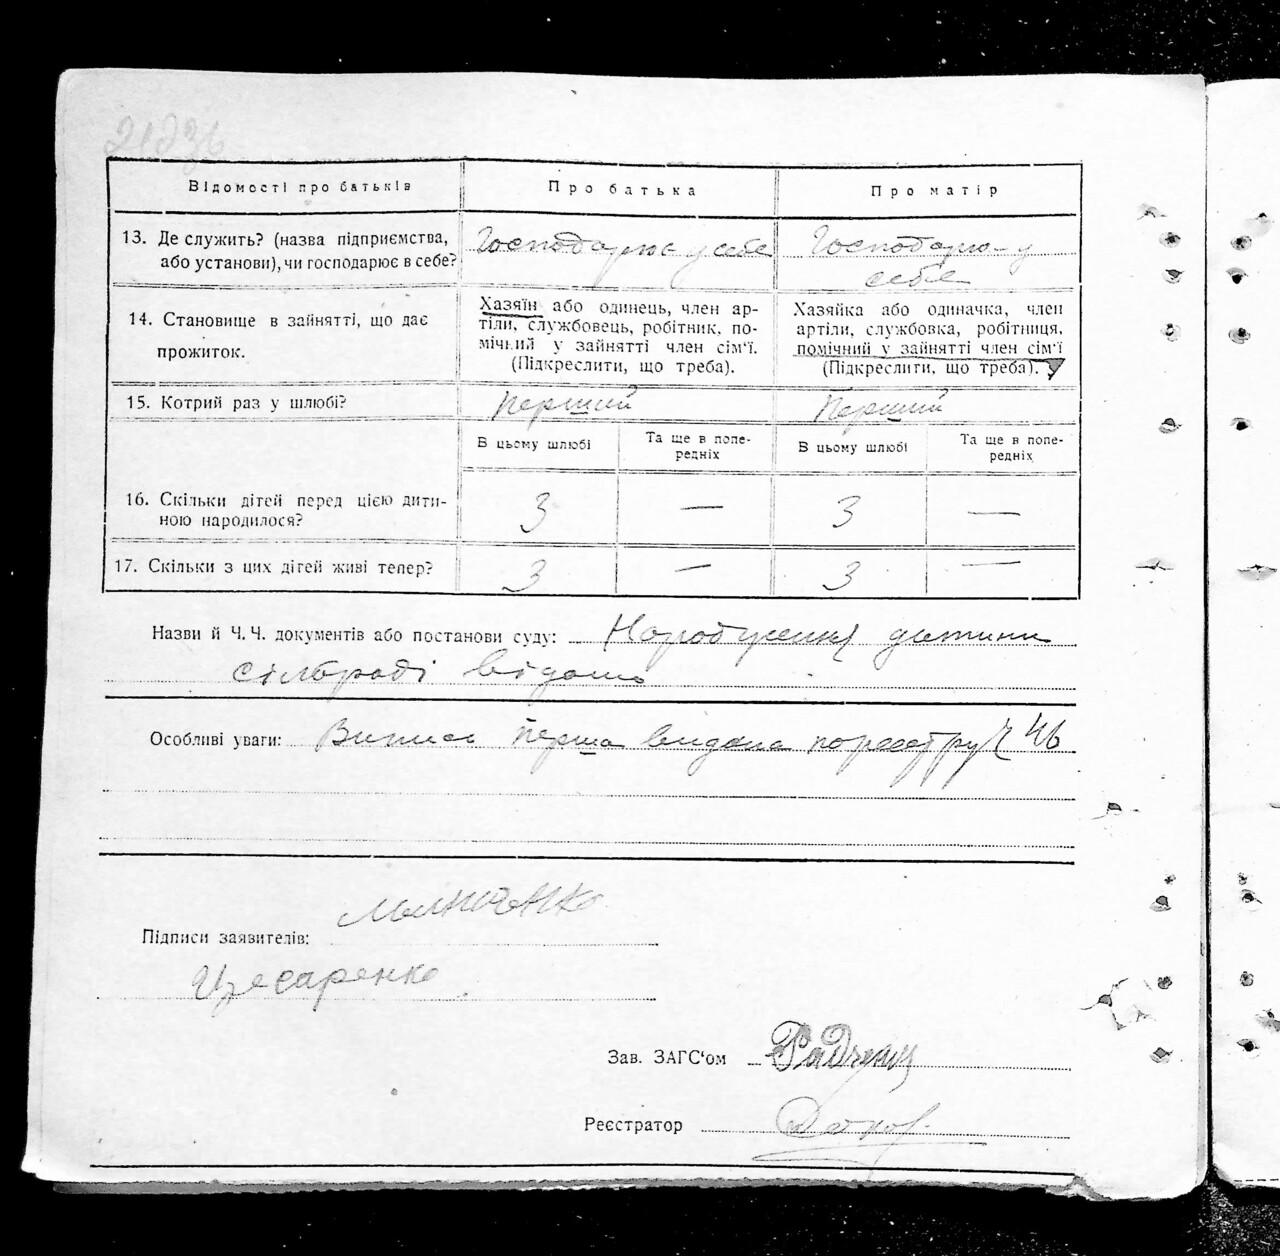 Відомості про батьків
Про батька
Про матір
13. Де служить? (назва підприємства, або установи), чи господарює в себе?
Господарює у себе
Господарює у
себе
14. Становище в зайнятті, що дає
прожиток.
Хазяїн або одинець, член ар-
тіли, службовець, робітник, по-
мічний у зайнятті член сім'ї.
(Підкреслити, що треба).
Хазяйка або одиначка, член
артіли, службовка, робітниця,
помічний у зайнятті член сім'ї
(Підкреслити, що треба).
15. Котрий раз у шлюбі?
Перший
Перший
В цьому шлюбі
Та ще в попе-
редніх
В цьому шлюбі
Та ще в попе-
редніх
16. Скільки дітей перед цією дити-
ною народилося?
3 — 3 —
17. Скільки з цих дітей живі тепер?
3 — 3 —
Назви й Ч.Ч. документів або постанови суду: Народження дитини
сільраді відомо
Особливі уваги: Випис перша видана по реєстру Ч 46
Підписи заявителів:
Цесаренко
Зав. ЗАГС'ом
Реєстратор